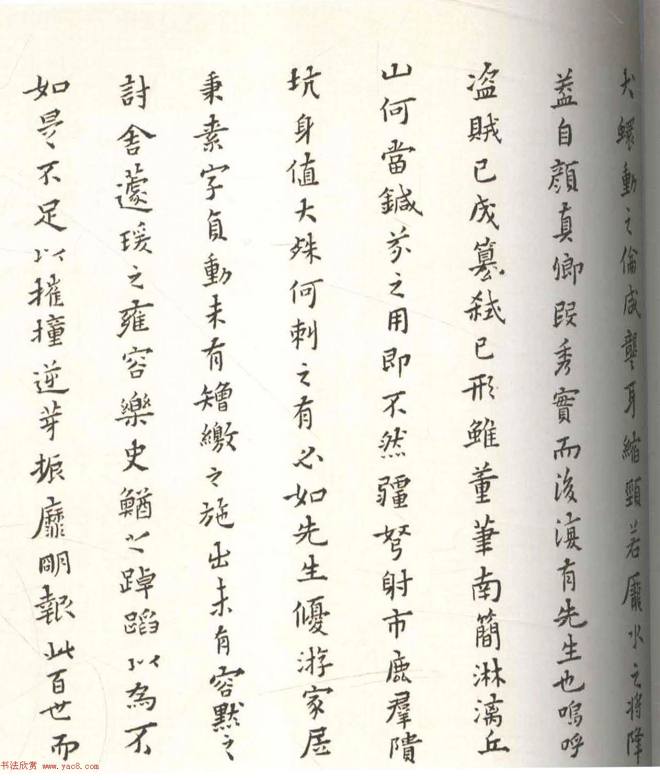 犬蠕動之倫咸聾耳縮頸若厖水之將降
蓋自顏真卿段秀實而後復有先生也嗚呼
盜賊已成篡弒已形雖董筆南簡淋漓丘
山何當鍼芥之用即不然彊弩射市鹿羣隤
坑身值大殊何刺之有必如先生優游家居
秉素守貞動未有矰繳之施出未有容默之
討舍蘧瑗之雍容樂史鰌之踔蹈以為不
如是不足以摧撞逆芽振靡朙報此百世而
书法欣赏 www.yac8.com